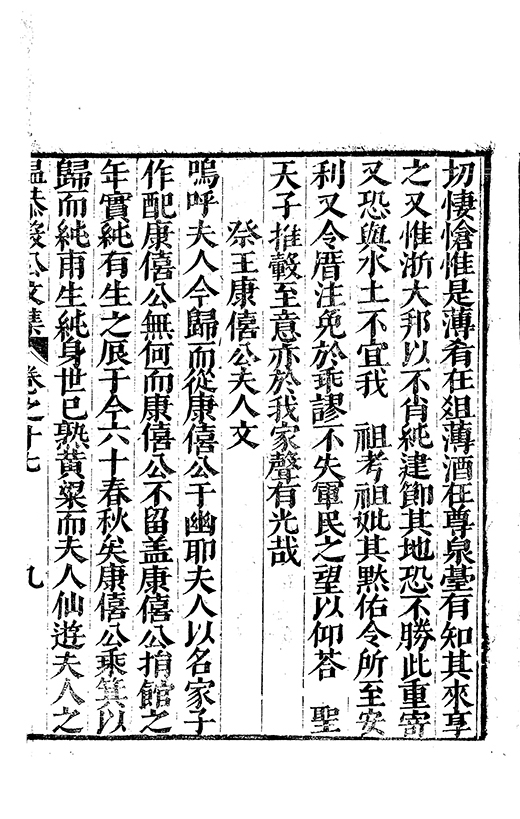 切悽愴惟是薄肴在俎薄酒在尊泉臺有知其來享
之又惟浙大邦以不肖純建節其地恐不勝此重寄
又恐與水土不宜我　祖考祖妣其黙佑令所至安
利又令厝注免於乖謬不失軍民之望以仰荅　聖
天子推轂至意亦於我家聲有光哉
祭王康僖公夫人文
嗚呼夫人今歸而從康僖公于幽耶夫人以名家子
作配康僖公無何而康僖公不留盖康僖公捐館之
年實純有生之辰于今六十春秋矣康僖公乘箕以
歸而純甫生純身世已熟黃粱而夫人仙遊夫人之
温恭毅公文集　卷之十七　九